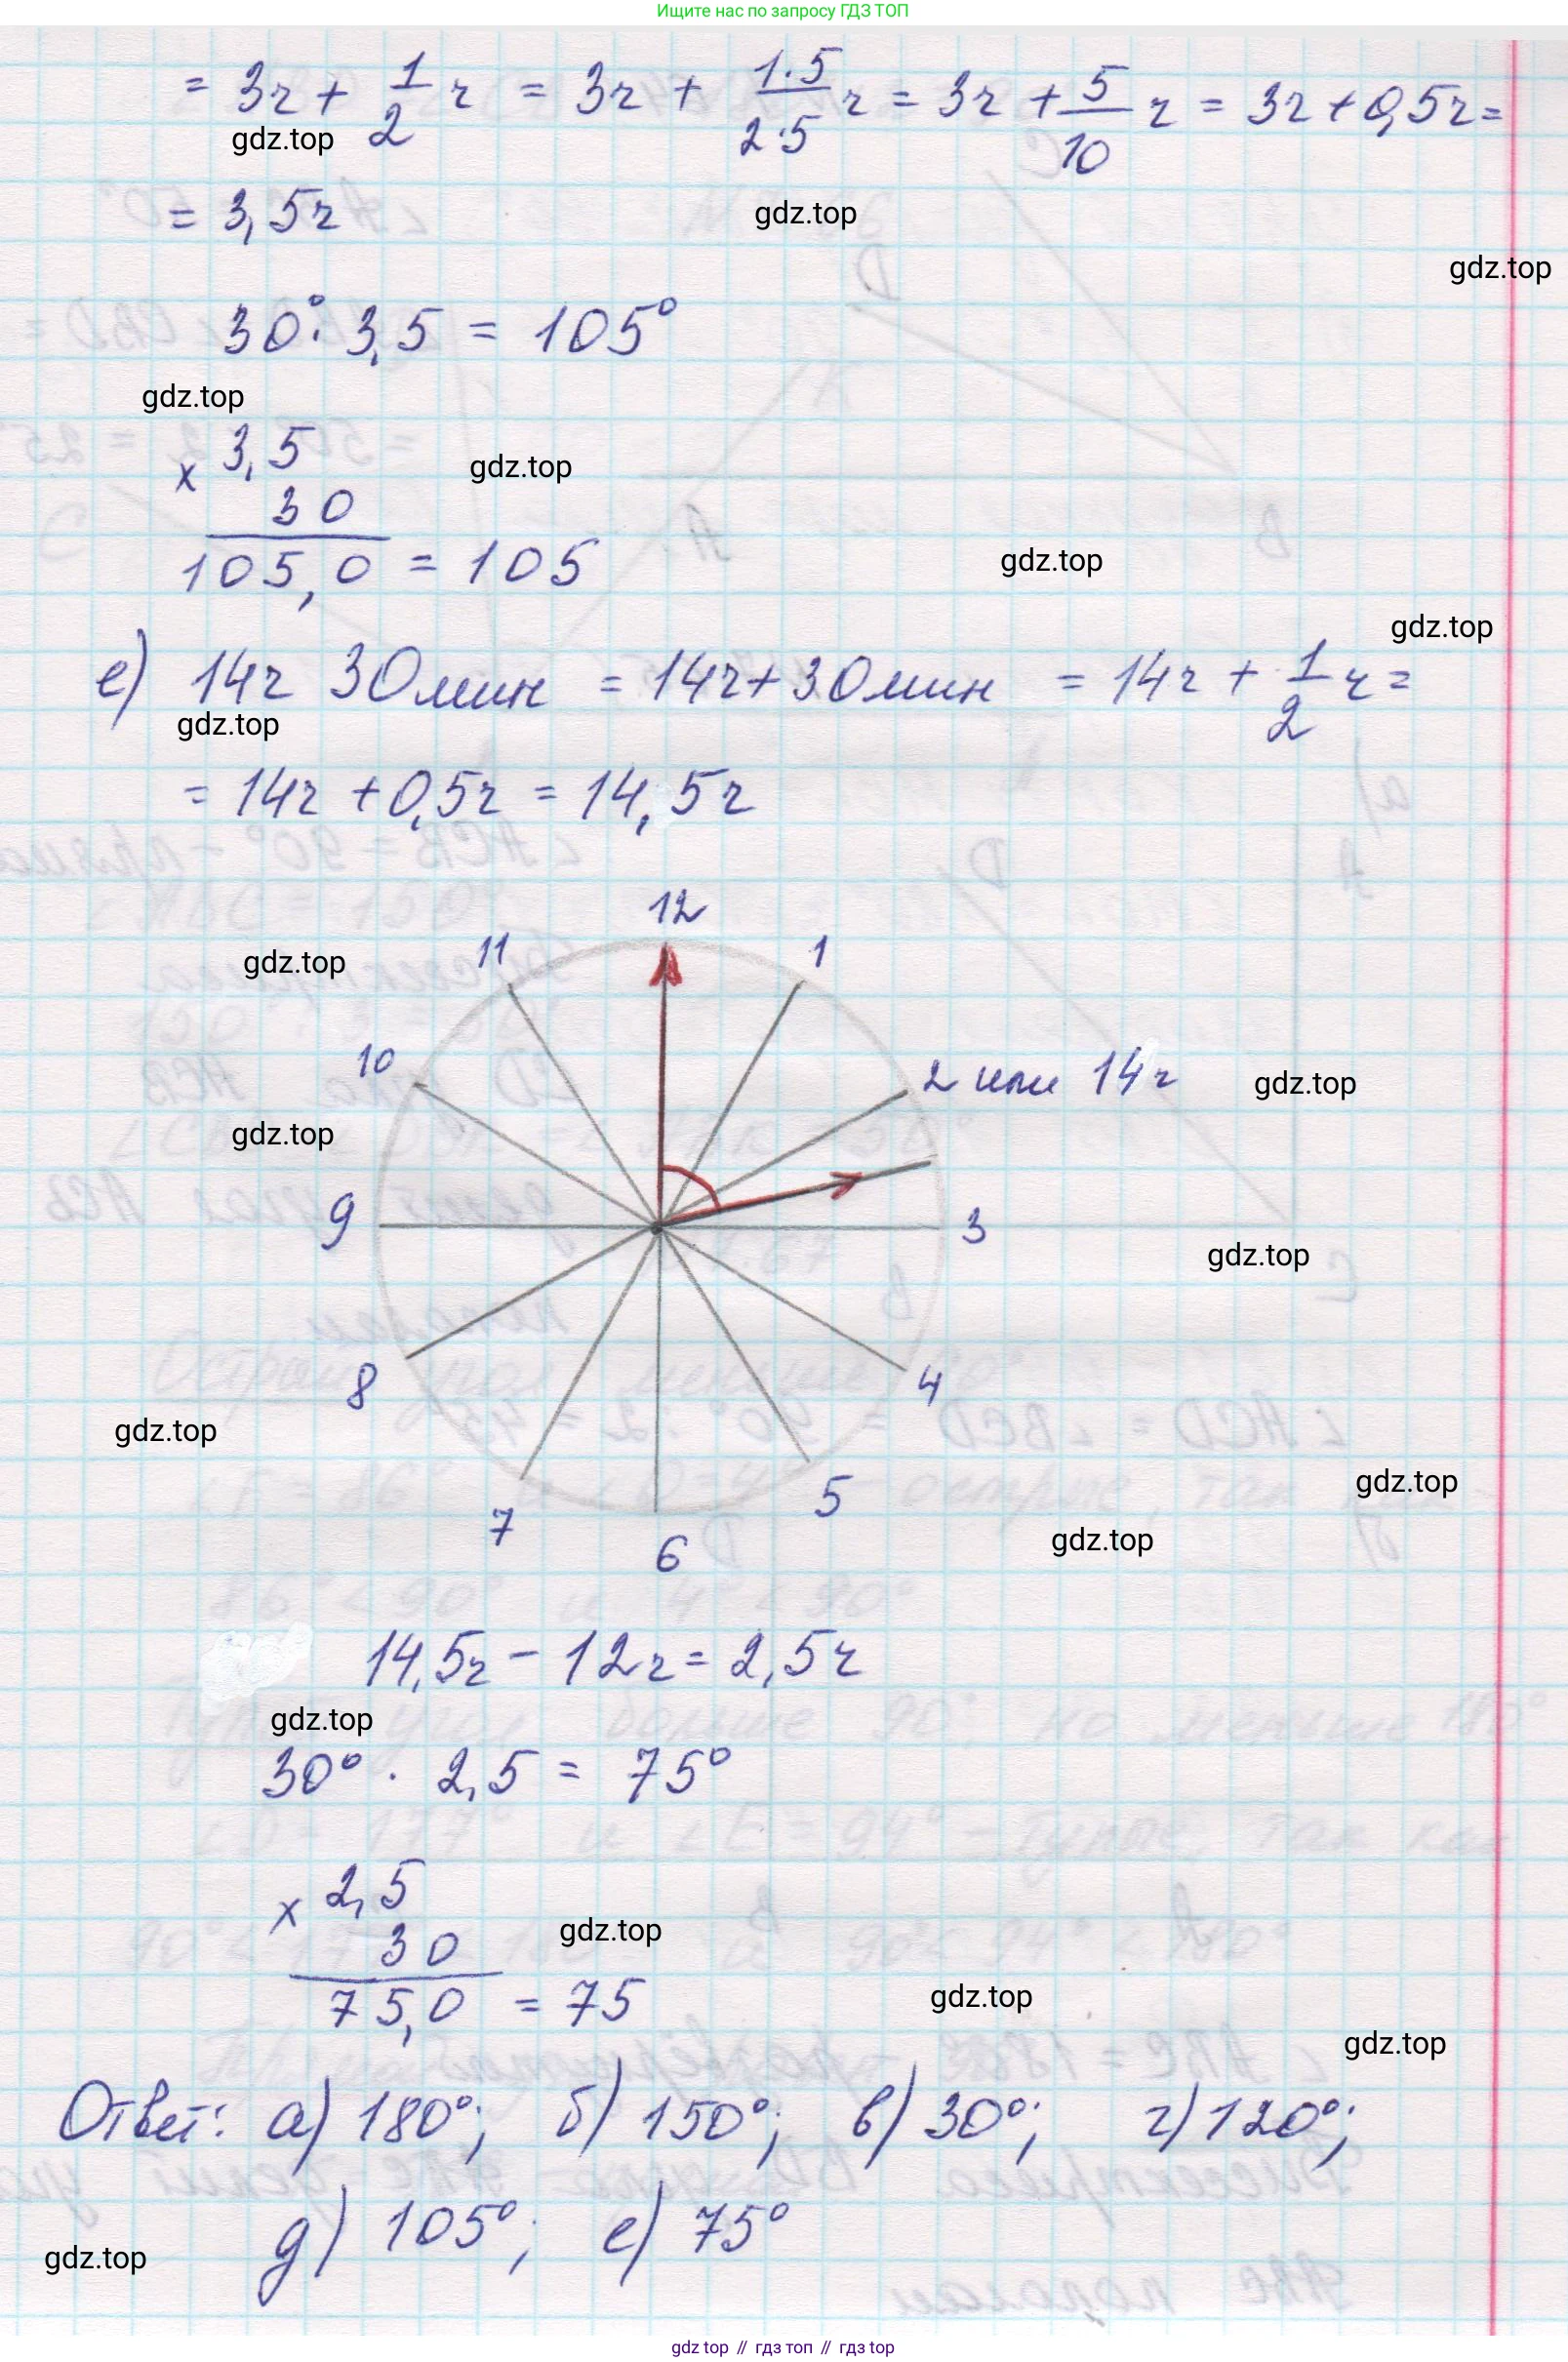 Ищите нас по запросу ГДЗ ТОП
= 3ч + 1/2 ч = 3ч + 1·5/2·5 ч = 3ч + 5/10 ч = 3ч + 0,5ч =
gdz.top
= 3,5ч
gdz.top
gdz.top
30° · 3,5 = 105°
gdz.top
× 3,5
gdz.top
30
105,0 = 105
gdz.top
gdz.top
е) 14ч 30мин = 14ч + 30мин = 14ч + 1/2 ч =
gdz.top
= 14ч + 0,5ч = 14,5ч
12
11 1
gdz.top
10 2 или 14ч
gdz.top
gdz.top
9 3
gdz.top
8 4
gdz.top
gdz.top
7 5
gdz.top
6
14,5ч - 12ч = 2,5ч
gdz.top
30° · 2,5 = 75°
× 2,5
gdz.top
30
75,0 = 75
gdz.top
gdz.top
Ответ: а) 180°; б) 150°; в) 30°; г) 120°;
д) 105°; е) 75°
gdz.top
gdz top // гдз топ // гдз top